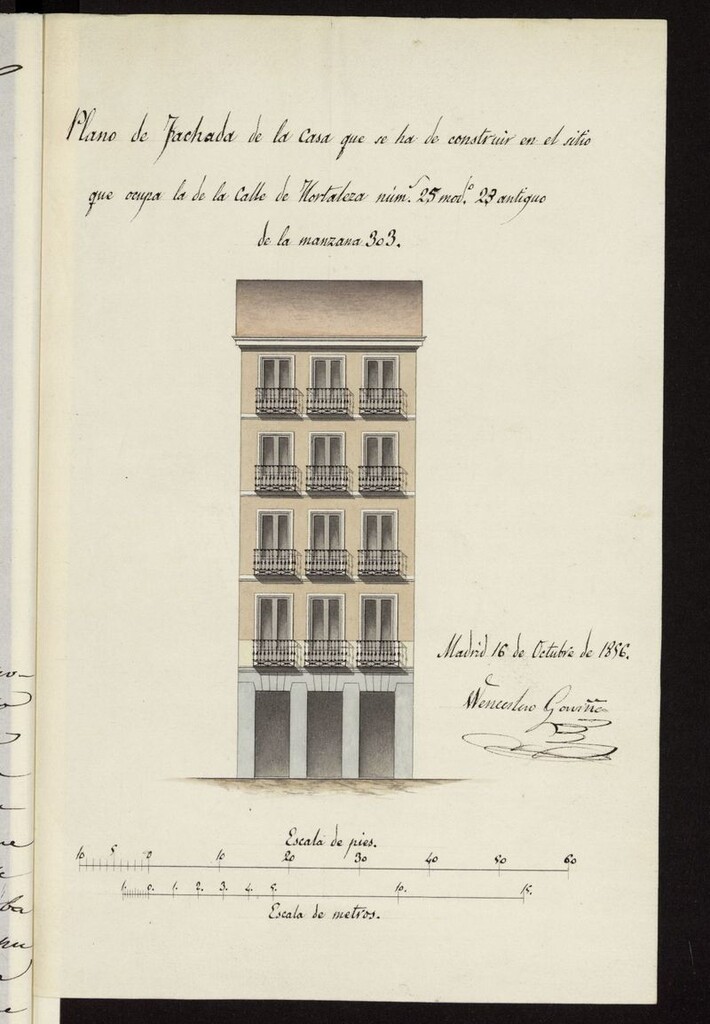 Plano de Fachada de la Casa que se ha de construir en el sitio
que ocupa la de la Calle de Hortaleza núm.º 25 mod.º 23 antiguo
de la manzana 303.
Madrid 16 de Octubre de 1856.
Wenceslao Gaviña
Escala de pies.
10 5 0 10 20 30 40 50 60
1. 0. 1. 2. 3. 4. 5. 10. 15.
Escala de metros.